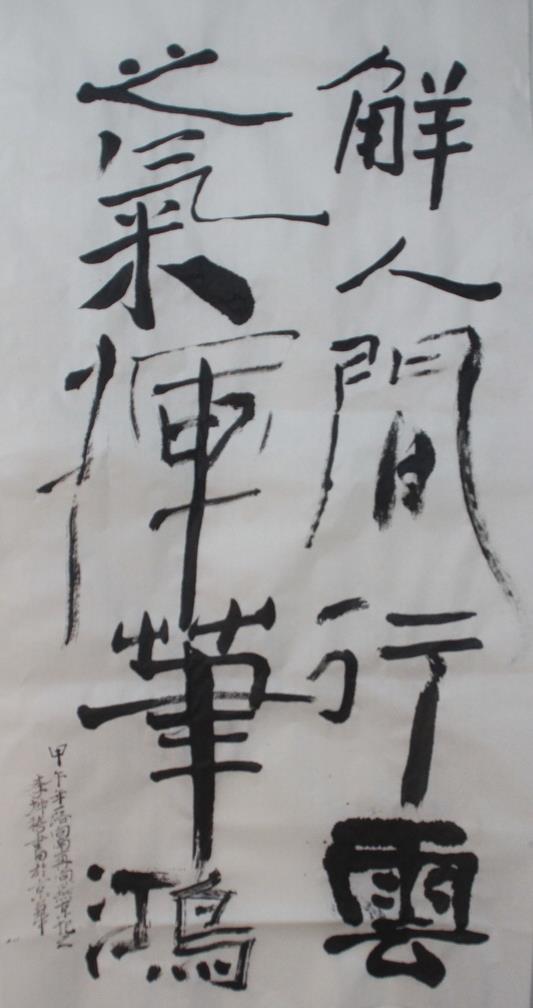 解人間行雲
之氣揮筆鴻
甲午年
李